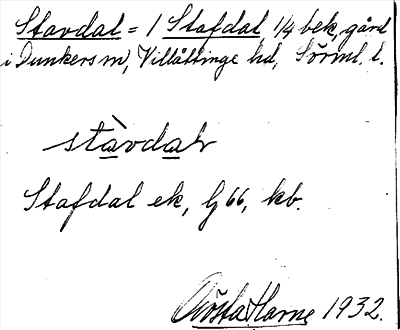 Stavdal = 1 Stafdal, 1/4 bek, gård
i Dunkers sn, Villåttinge hd, Sörml. l.
stàvdaɫ
Stafdal ek, G 66, kb.
Gösta Harne 1932.